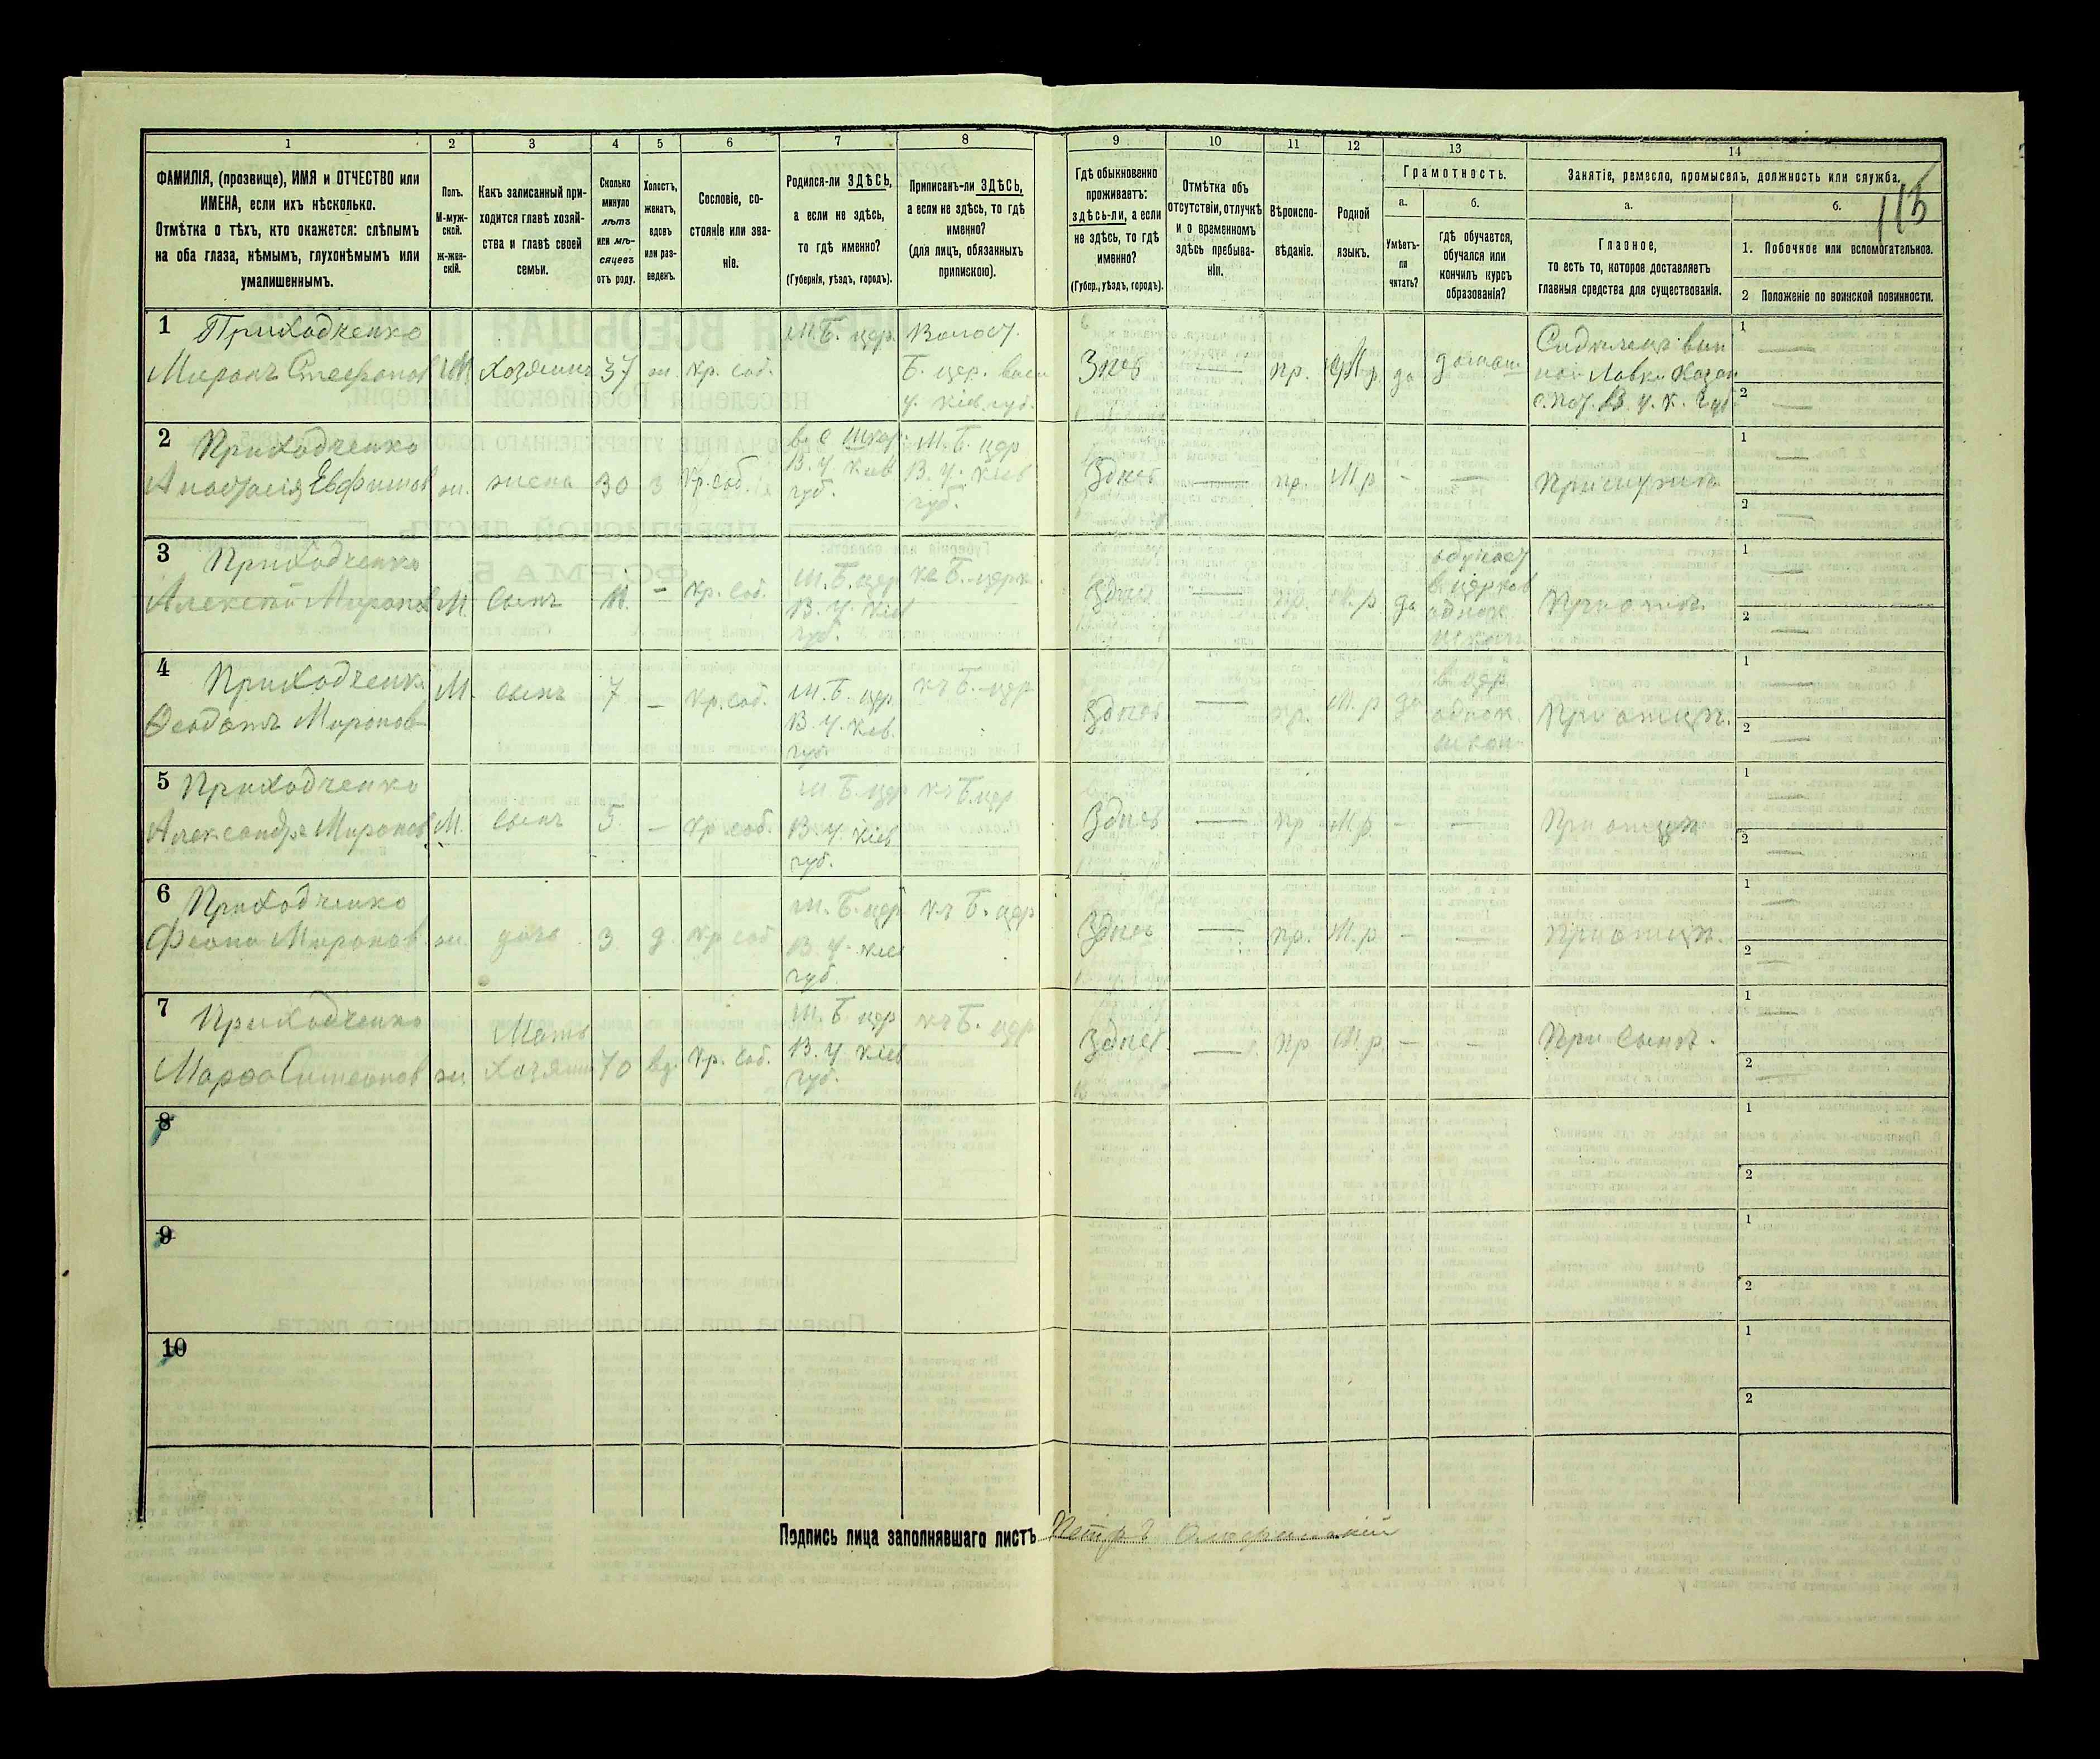 1 2 3 4 5 6 7 8 9 10 11 12 13 14
ФАМИЛІЯ, (прозвище), ИМЯ и ОТЧЕСТВО или
ИМЕНА, если ихъ нѣсколько.
Отмѣтка о тѣхъ, кто окажется: слѣпымъ
на оба глаза, нѣмымъ, глухонѣмымъ или
умалишеннымъ.
Полъ.
М-муж-
ской.
ж-жен-
скій.
Какъ записанный при-
ходится главѣ хозяй-
ства и главѣ своей
семьи.
Сколько
минуло
лѣтъ
или мѣ-
сяцевъ
отъ роду.
Холостъ,
женатъ,
вдовъ
или раз-
веденъ.
Сословіе, со-
стояніе или зва-
ніе.
Родился-ли ЗДѢСЬ,
а если не здѣсь,
то гдѣ именно?
(Губернія, уѣздъ, городъ).
Приписанъ-ли ЗДѢСЬ,
а если не здѣсь, то гдѣ
именно?
(для лицъ, обязанныхъ
припискою).
Гдѣ обыкновенно
проживаетъ:
здѣсь-ли, а если
не здѣсь, то гдѣ
именно?
(Губер., уѣздъ, городъ).
Отмѣтка объ
отсутствіи, отлучкѣ
и о временномъ
здѣсь пребыва-
ніи.
Вѣроиспо-
вѣданіе.
Родной
языкъ.
Грамотность.
а.
Умѣетъ-
ли
читать?
б.
гдѣ обучается,
обучался или
кончилъ курсъ
образованія?
Занятіе, ремесло, промыселъ, должность или служба.
115
а.
Главное,
то есть то, которое доставляетъ
главныя средства для существованія.
б.
1. Побочное или вспомогательное.
2 Положеніе по воинской повинности.
1 Приходченко
Миронъ Стефанов М. хозяинъ 37 ж. кр. соб.
М. Б. цер.
Волост.
Б. цер. вас
у. Кіев. губ.
пр. М. р. да
1
2
2 Приходченко
Анастасія Евфимов ж. жена 30 з кр. соб.
В. у. Кіев
губ.
М. Б. цер
В. у. Кіев
губ.
Здесь — пр. М.р - —
1
2
3 Приходченко
Алексѣй Миронов М. сынъ 11. - кр. соб.
М. Б. цер
В. у. Кіев
губ.
Здесь — пр. М. р да
школ
1
2
4 Приходченко
Феодотъ Миронов М. сынъ 7 - кр. соб.
М. Б. цер
В. у. Кіев.
губ.
къ Б. цер
Здесь — пр. М. р да
в цер
однок.
школ
При отцѣ.
1
2
5 Приходченко
Александръ Миронов М. сынъ 5 - кр соб.
М Б. цер
В. у. Кіев
губ.
къ Б. цер
Здесь — пр М. р. - —
При отцѣ
1
2
6 Приходченко
Миронов ж. дочь 3 д. кр соб
М. Б. цер
В. у. Кіев
губ.
къ Б. цер
Здесь — пр. М. р - —
При отцѣ.
1
2
7 Приходченко
Марфа Симеонов ж.
Мать
хозяина 70 вд. кр. соб.
М. Б. цер
В. у Кіев
губ.
къ Б. цер
Здесь. — пр М. р. - -
При сынѣ.
1
2
8
1
2
9
1
2
10
1
2
Подпись лица заполнявшаго листъ Петръ